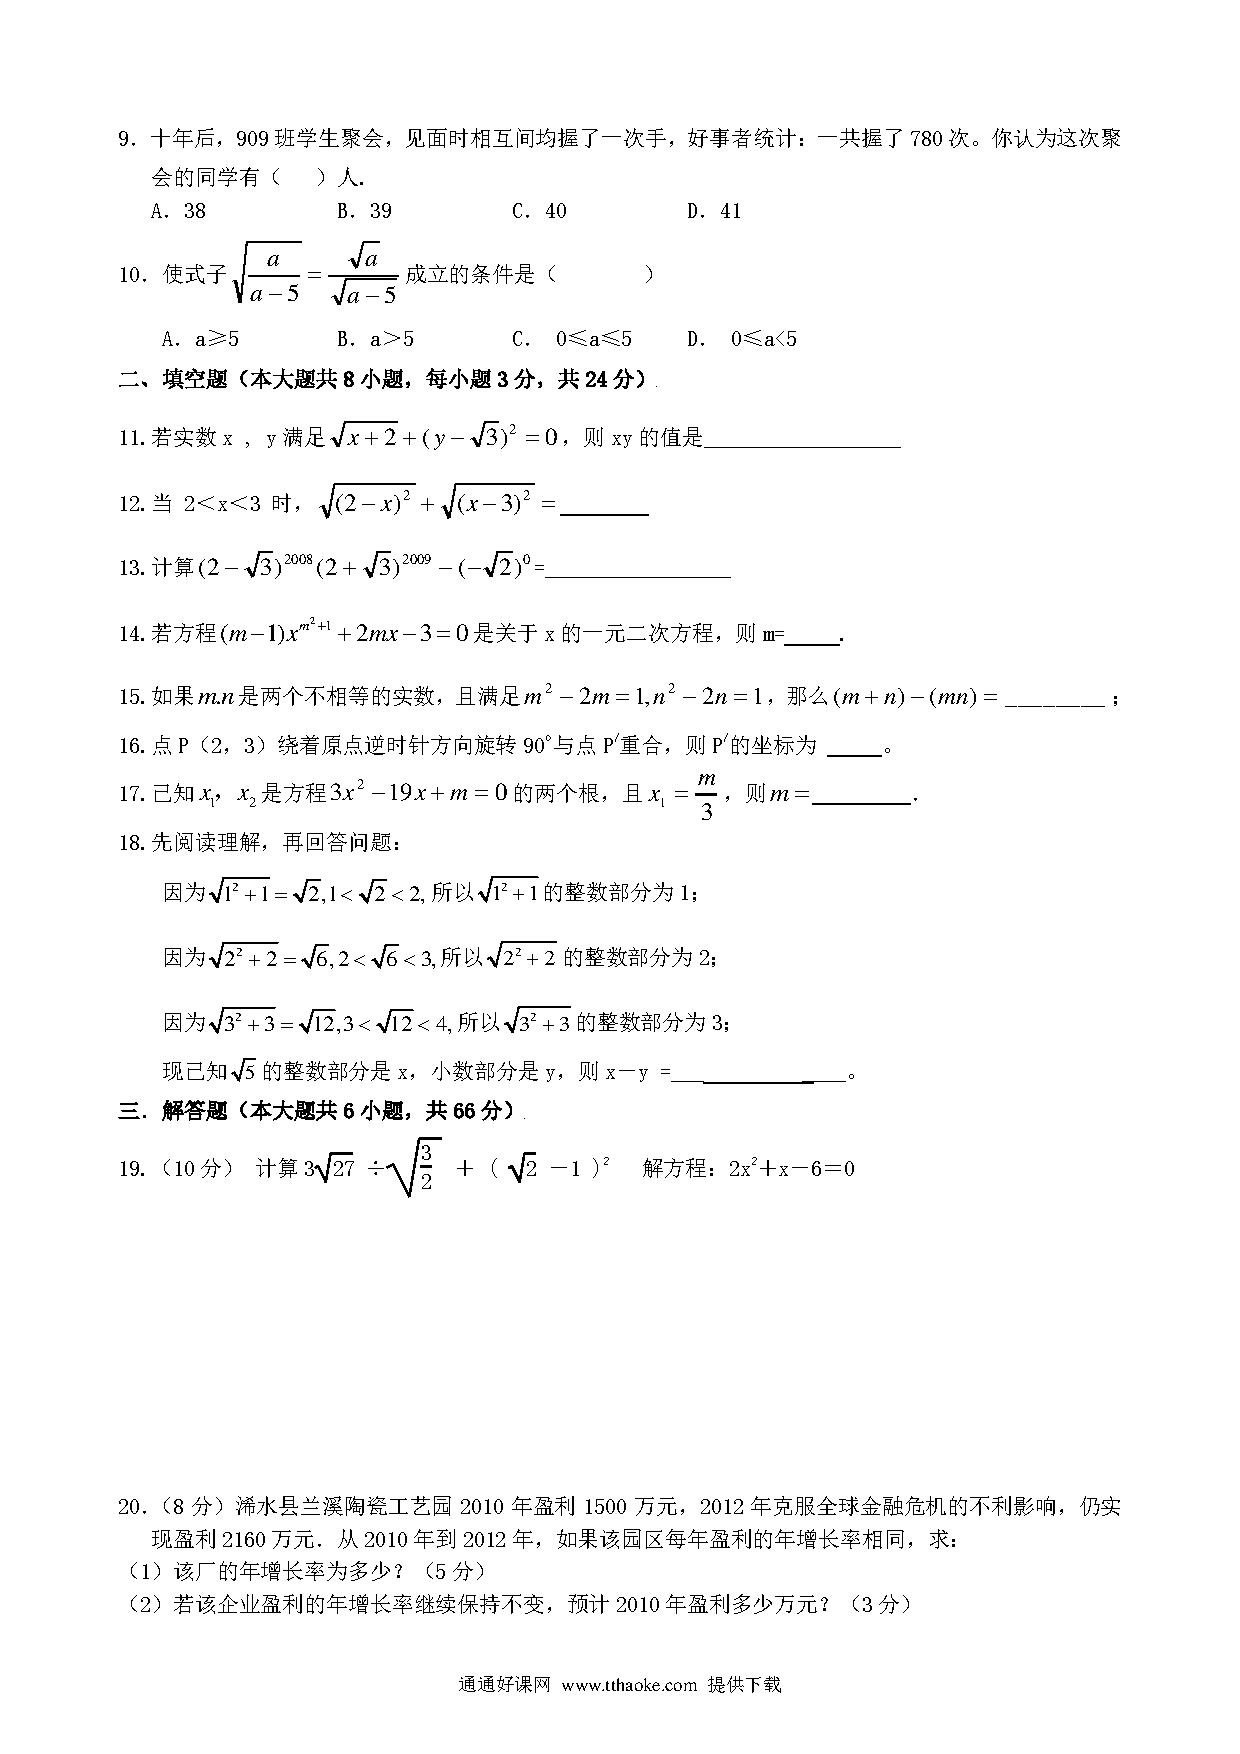 9．十年后，909班学生聚会，见面时相互间均握了一次手，好事者统计：一共握了780次。你认为这次聚
会的同学有（　　）人.
A．38　　B．39　　C．40　　D．41
10．使式子√(a/(a−5)) = √a/√(a−5) 成立的条件是（　　）
A．a≥5　　B．a＞5　　C． 0≤a≤5　　D． 0≤a<5
二、填空题（本大题共8小题，每小题3分，共24分）
11.若实数x , y满足 √(x+2)+(y−√3)²=0，则xy的值是__________________
12.当 2＜x＜3 时，√((2−x)²) + √((x−3)²) =________
13.计算(2−√3)²⁰⁰⁸(2+√3)²⁰⁰⁹−(−√2)⁰=_________________
14.若方程(m−1)x^(m²+1)+2mx−3=0是关于x的一元二次方程，则m=_____.
15.如果m.n是两个不相等的实数，且满足m²−2m=1,n²−2n=1，那么(m+n)−(mn)=________；
16.点P（2，3）绕着原点逆时针方向旋转90°与点P/重合，则P/的坐标为 _____。
17.已知x₁，x₂是方程3x²−19x+m=0的两个根，且x₁=m/3，则m=_________．
18.先阅读理解，再回答问题：
因为√(1²+1)=√2,1<√2<2,所以√(1²+1)的整数部分为1；
因为√(2²+2)=√6,2<√6<3,所以√(2²+2)的整数部分为2；
因为√(3²+3)=√12,3<√12<4,所以√(3²+3)的整数部分为3；
现已知√5的整数部分是x，小数部分是y，则x－y =________________。
三．解答题（本大题共6小题，共66分）
19.（10分） 计算3√27 ÷√(3/2) ＋（√2 －1 )² 解方程：2x²＋x－6＝0
20.（8分）浠水县兰溪陶瓷工艺园2010年盈利1500万元，2012年克服全球金融危机的不利影响，仍实
现盈利2160万元．从2010年到2012年，如果该园区每年盈利的年增长率相同，求：
（1）该厂的年增长率为多少？（5分）
（2）若该企业盈利的年增长率继续保持不变，预计2010年盈利多少万元？（3分）
通通好课网 www.tthaoke.com 提供下载